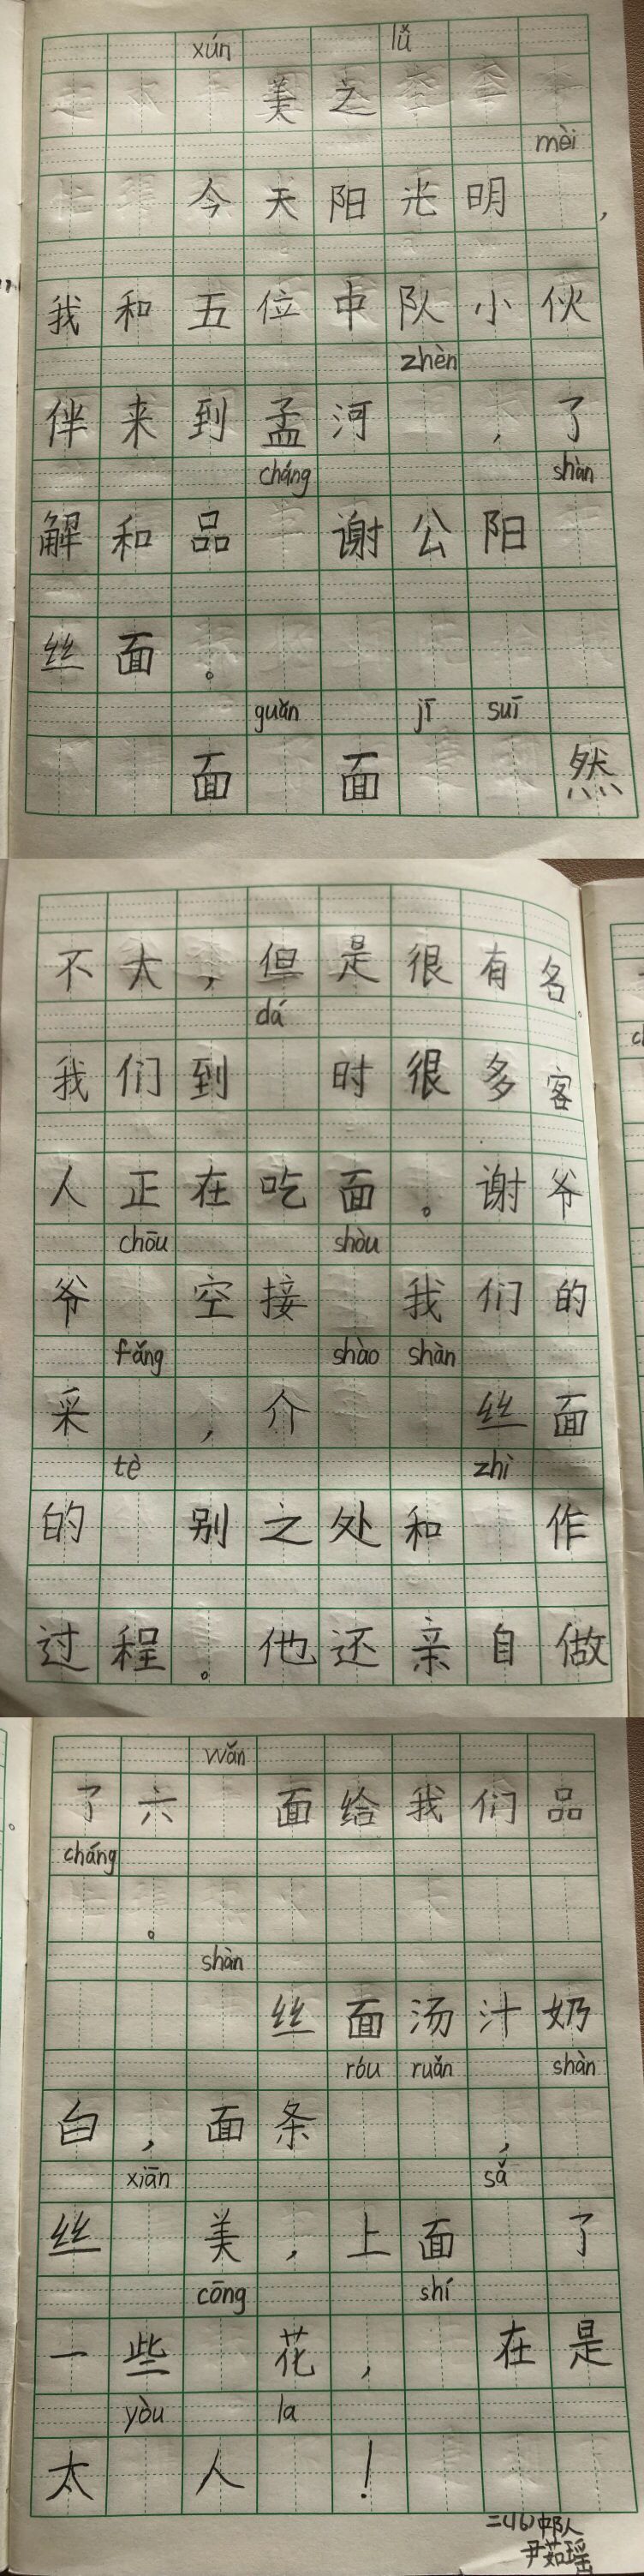 xún lǚ
美之
mèi
今天阳光明，
我和五位中队小伙
zhèn
伴来到孟河，了
cháng shàn
解和品谢公阳
丝面。
guǎn jī suī
面面然
不大，但是很有名。
dá
我们到时很多客
人正在吃面。谢爷
chōu shòu
爷空接我们的
fǎng shào shàn
采，介丝面
tè zhì
的别之处和作
过程。他还亲自做
wǎn
了六面给我们品
cháng
。
shàn
丝面汤汁奶
róu ruǎn shàn
白，面条，
xiān sǎ
丝美，上面了
cōng shí
一些花，在是
yòu la
太人！
二(16)中队
尹茹瑶